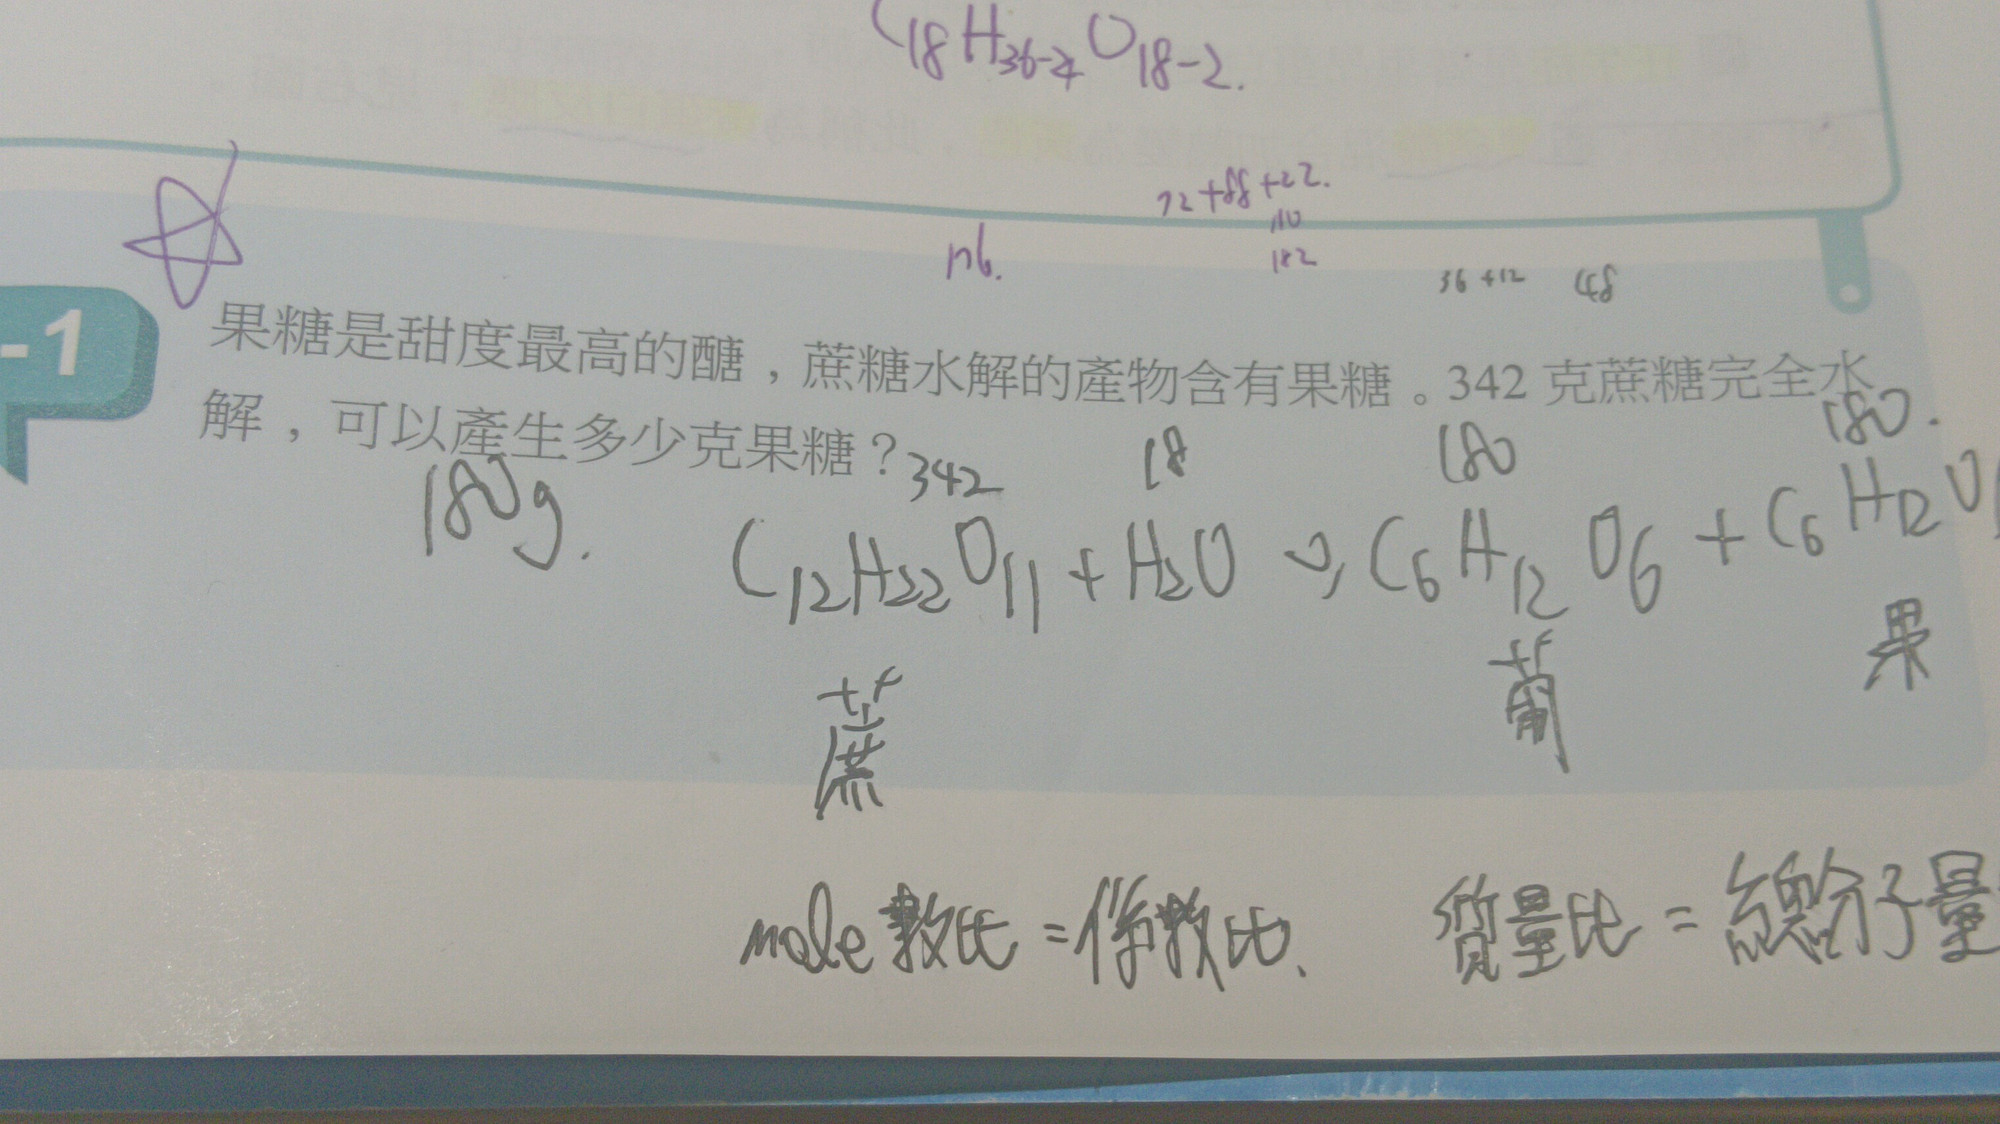 C18H36-4O18-2.
72+88+22.
110
182
176.
36+12 48
-1
果糖是甜度最高的醣，蔗糖水解的產物含有果糖。342 克蔗糖完全水
解，可以產生多少克果糖？
180g.
342 18 180 180.
C12H22O11 + H2O → C6H12O6 + C6H12O
蔗 葡 果
mole數比=係數比. 質量比=總分子量